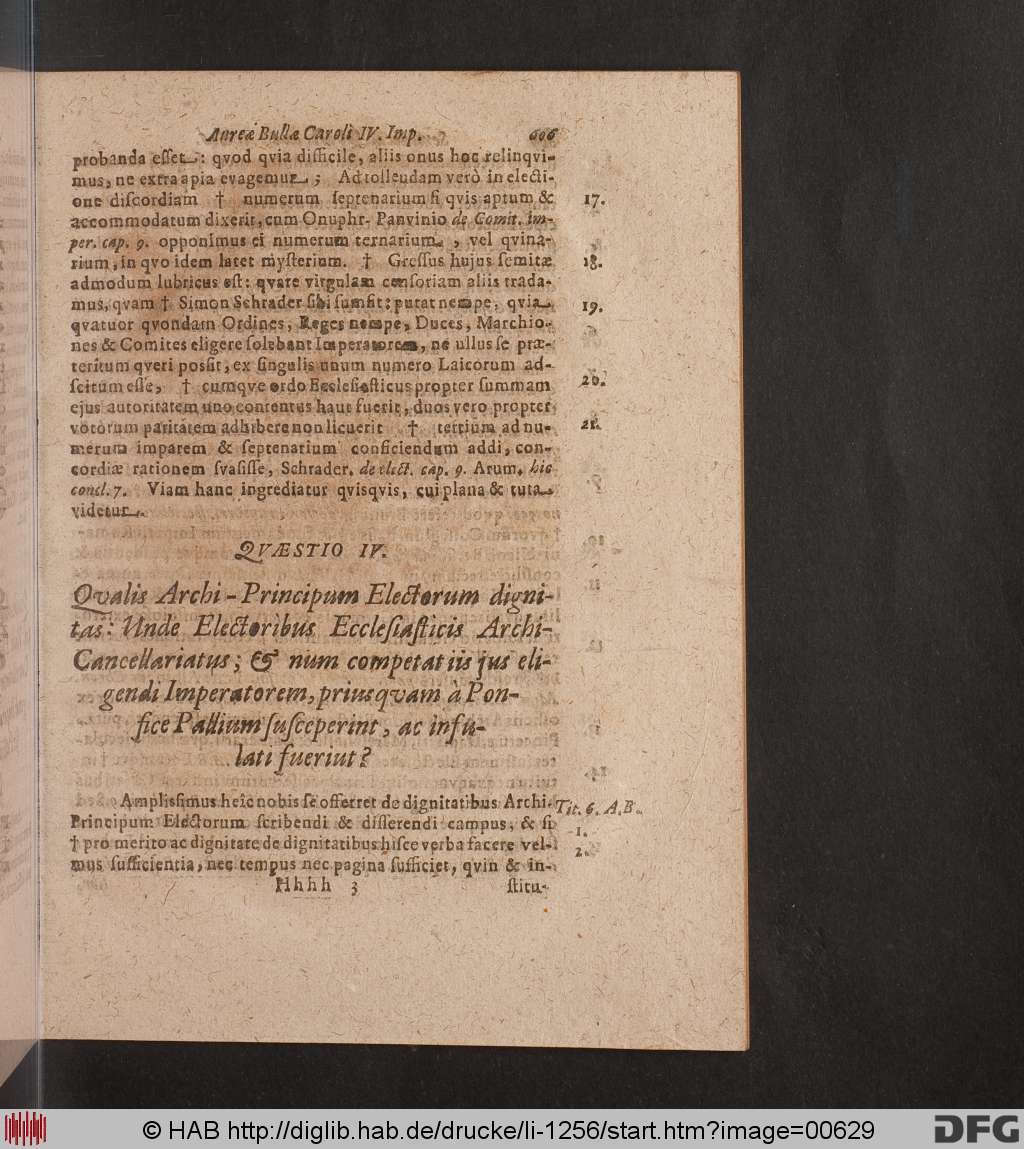 Aureæ Bullæ Caroli IV. Imp. 606
probanda esset: qvod qvia difficile, aliis onus hoc relinqvi-
mus, ne extra apia evagemur; Ad tollendam verò in electi-
one discordiam † numerum septenarium si qvis aptum & 17.
accommodatum dixerit, cum Onuphr. Panvinio de Comit. im-
per. cap. 9. opponimus ei numerum ternarium, vel qvina-
rium, in qvo idem latet mysterium. † Gressus hujus semitæ 18.
admodum lubricus est: qvare virgulam censoriam aliis trada-
mus, qvam † Simon Schrader sibi sumsit: putat nempe, qvia 19.
qvatuor qvondam Ordines, Reges nempe, Duces, Marchio-
nes & Comites eligere solebant Imperatorem, ne ullus se præ-
teritum qveri possit, ex singulis unum numero Laicorum ad-
scitum esse, † cumqve ordo Ecclesiasticus propter summam 20.
ejus autoritatem uno contentus haut fuerit, duos vero propter
votorum paritatem adhibere non licuerit † tertium ad nu- 21.
merum imparem & septenarium conficiendum addi, con-
cordiæ rationem svasisse, Schrader. de elect. cap. 9. Arum. hic
concl. 7. Viam hanc ingrediatur qvisqvis, cui plana & tuta
videtur.
QVÆSTIO IV.
Qvalis Archi-Principum Electorum digni-
tas: Unde Electoribus Ecclesiasticis Archi-
Cancellariatus; & num competat iis jus eli-
gendi Imperatorem, priusqvam à Pon-
fice Pallium susceperint, ac infu-
lati fueriut?
Amplissimus heîc nobis se offerret de dignitatibus Archi- Tit. 6. A.B.
Principum Electorum scribendi & disserendi campus, & si 1.
† pro merito ac dignitate de dignitatibus hisce verba facere vel- 2.
mus sufficientia, nec tempus nec pagina sufficiet, qvin & in-
Hhhh 3 stitu-
© HAB http://diglib.hab.de/drucke/li-1256/start.htm?image=00629
DFG